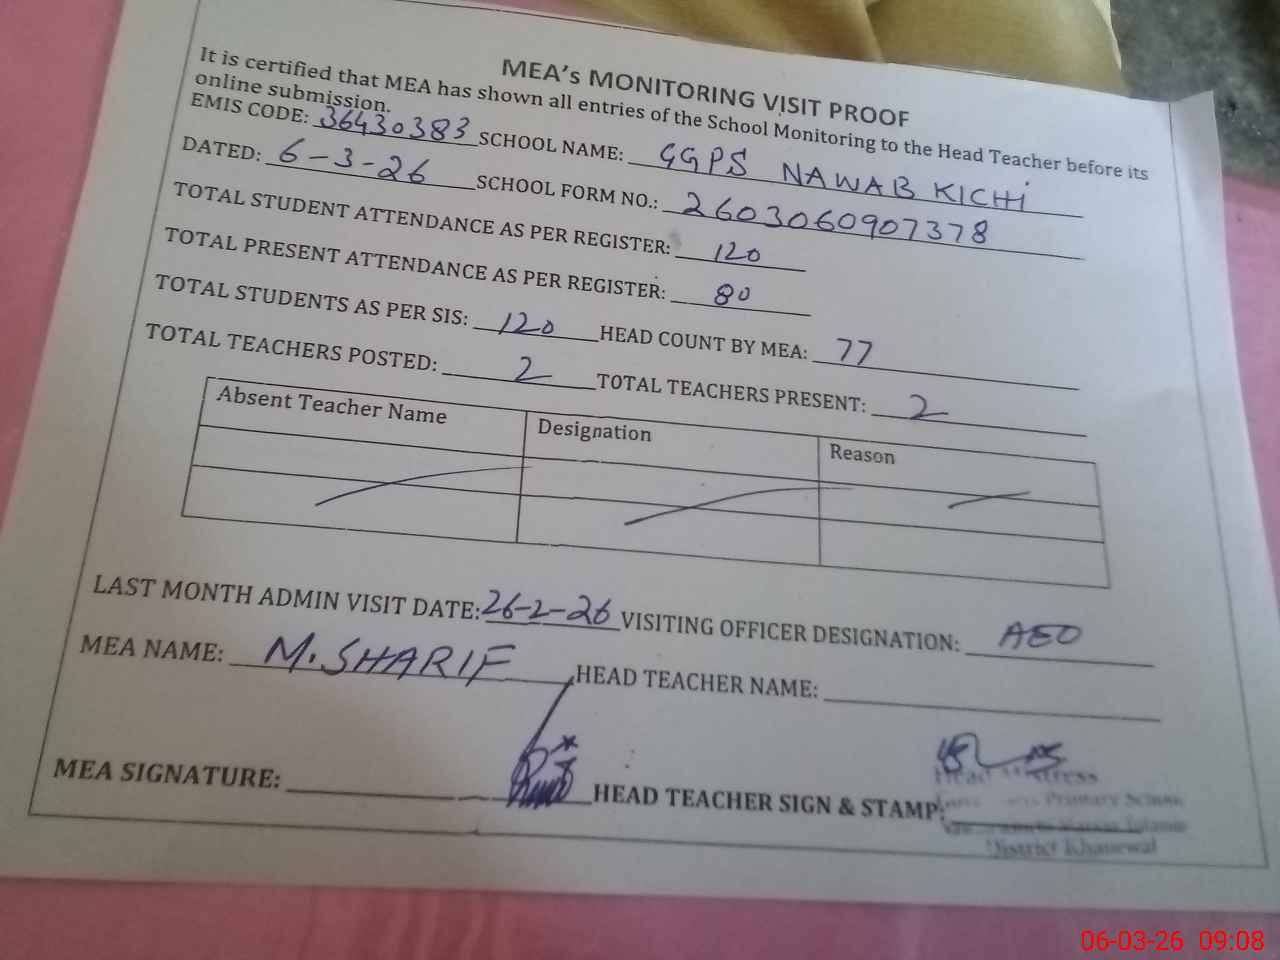 MEA's MONITORING VISIT PROOF
It is certified that MEA has shown all entries of the School Monitoring to the Head Teacher before its
online submission.
EMIS CODE: 36430383 SCHOOL NAME: GGPS NAWAB KICHI
DATED: 6-3-26 SCHOOL FORM NO.: 2603060907378
TOTAL STUDENT ATTENDANCE AS PER REGISTER: 120
TOTAL PRESENT ATTENDANCE AS PER REGISTER: 80
TOTAL STUDENTS AS PER SIS: 120 HEAD COUNT BY MEA: 77
TOTAL TEACHERS POSTED: 2 TOTAL TEACHERS PRESENT: 2
Absent Teacher Name Designation Reason
LAST MONTH ADMIN VISIT DATE: 26-2-26 VISITING OFFICER DESIGNATION: AEO
MEA NAME: M. SHARIF HEAD TEACHER NAME:
MEA SIGNATURE: HEAD TEACHER SIGN & STAMP:
Head Mistress
Primary School
District Khanewal
06-03-26 09:08